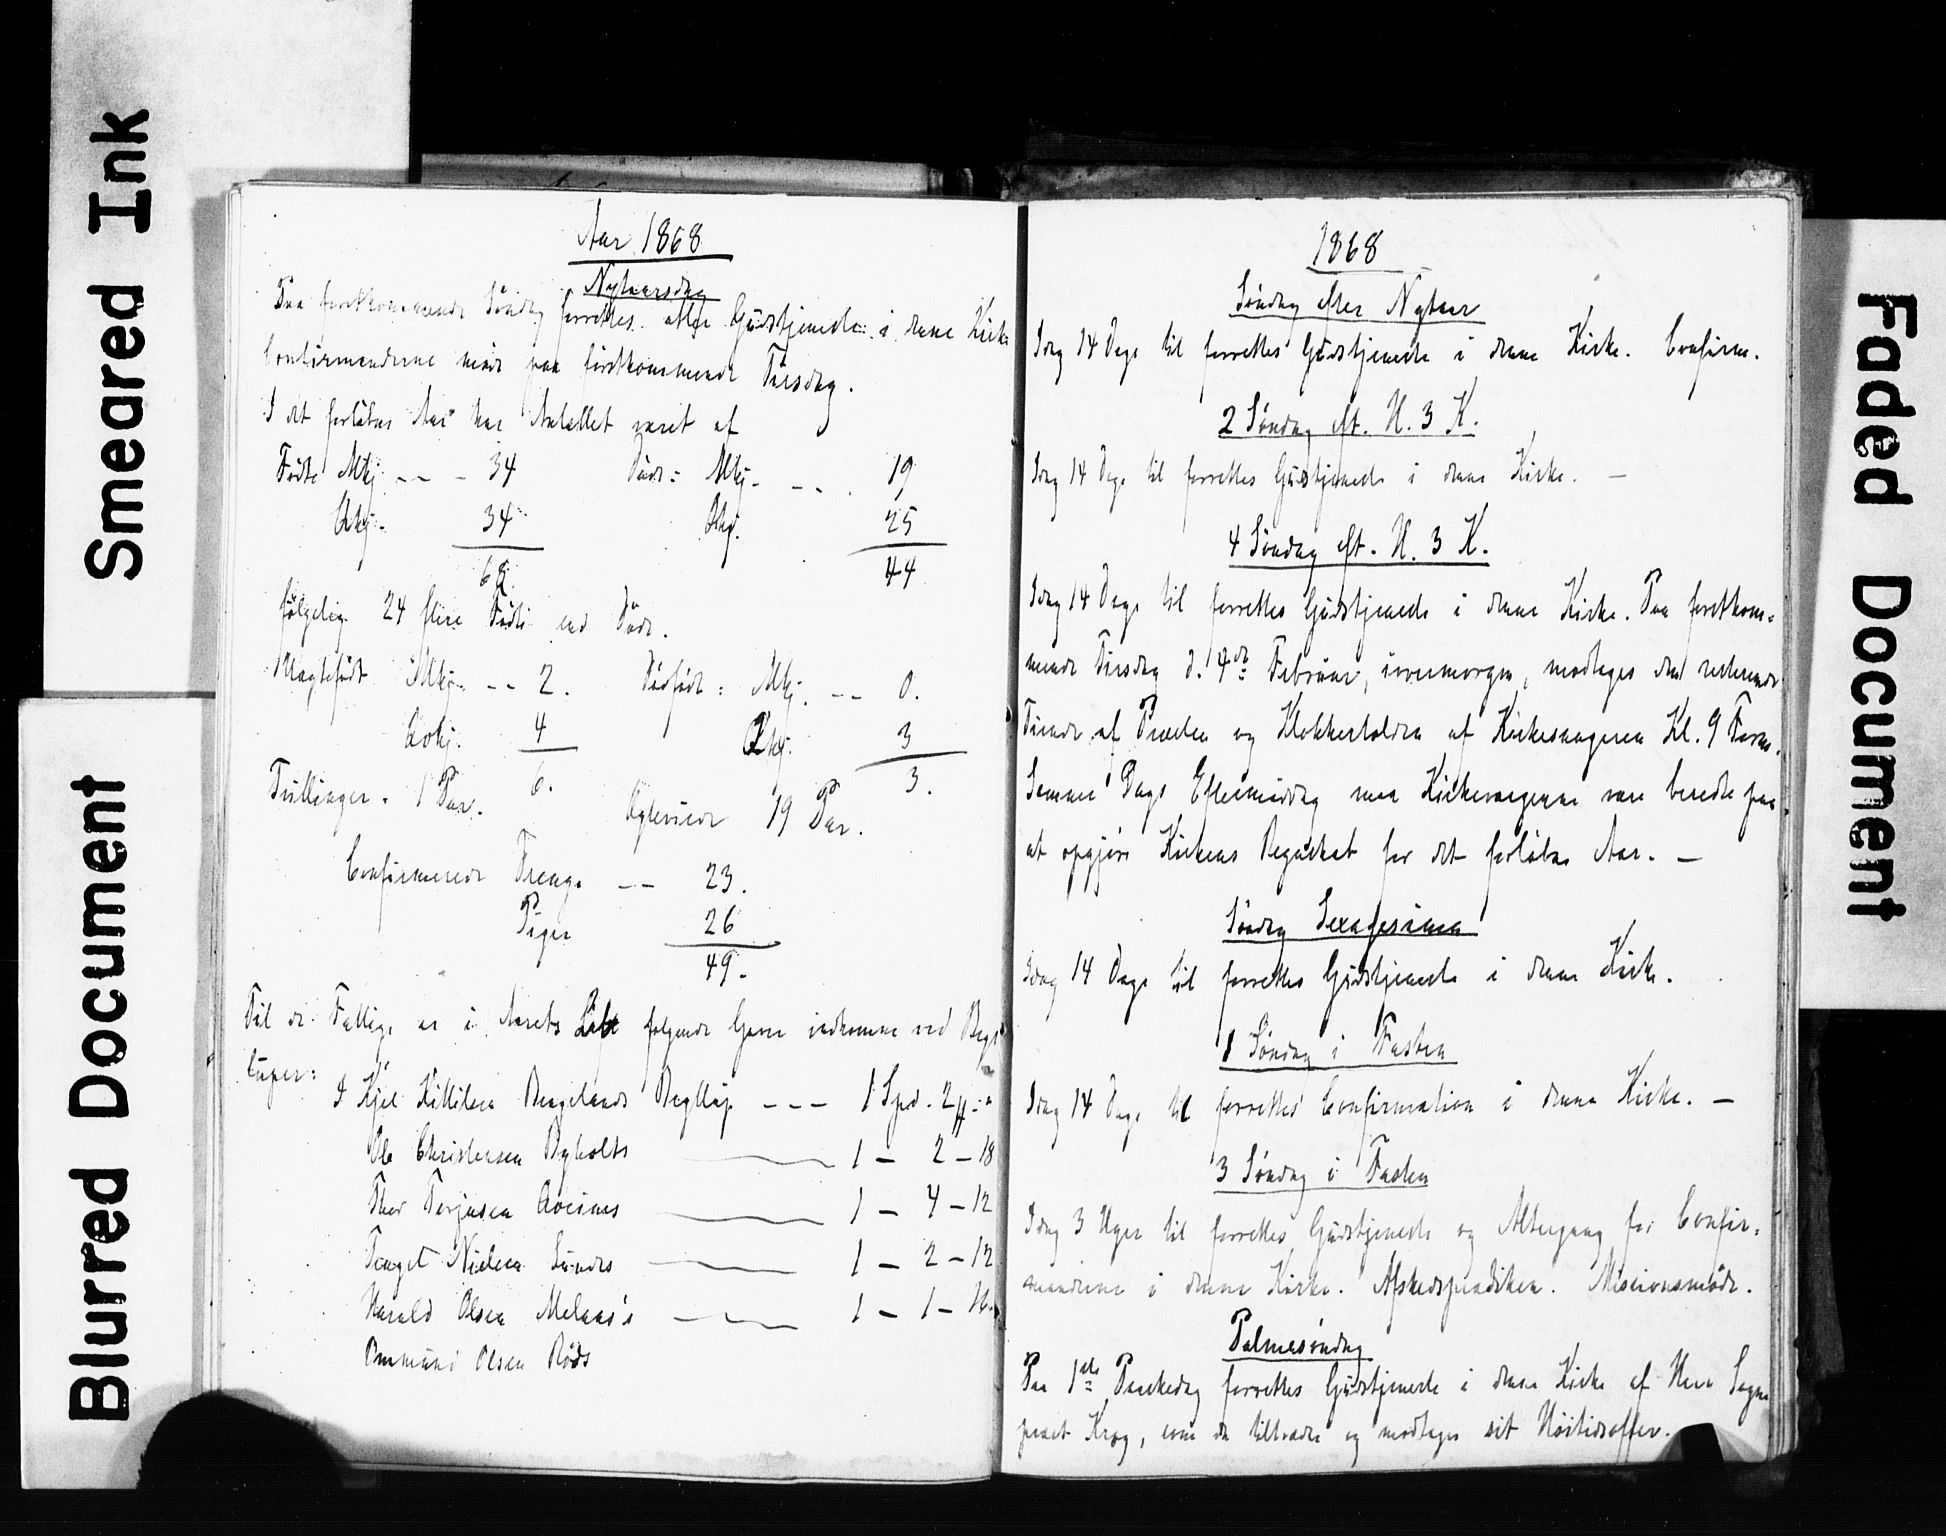 Smeared Ink
Blurred Document
Aar 1868
Nytaarsdag
Paa førstkommende Søndag forrettes atter Gudstjeneste i denne Kirke
Confirmanderne møde paa førstkommende Tirsdag.
I det forløbne Aar har Antallet været af
Fødte Mkj -- - 34 Døde: Mkj- -- . 19
Qkj- 34 Qkj. 25
68. 44
følgelig 24 flere Fødte end Døde.
Uægtefødt Mkj- -- 2. Dødfødt: Mkj. -- 0.
Qvkj. 4 Qkj. 3
6. 3.
Tvillinger. 1 Par. Egteviede 19 Par.
Confirmerede Drenge -- 23.
Piger 26
49.
Til de Fattige er i Aarets Løb følgende Gaver indkomne ved Bryl
luper:
I Kjel Kittilsen Bergelands Bryllup --- 1 Spd. 2 -
Ole Christensen Bøholts 1 - 2 - 18
Thor Terjesen 1 - 4 - 12
Nielsen Sundes 1 - 2 - 12
Harald Olsen Melaas's 1 - 1 - 16.
Olsen Røds
1868
Søndag efter Nytaar
Idag 14 Dage til forrettes Gudstjeneste i denne Kirke. Confirm.
2 Søndag eft. H. 3 K.
Idag 14 Dage til forrettes Gudstjeneste i denne Kirke. —
4 Søndag eft. H. 3 K.
Idag 14 Dage til forrettes Gudstjeneste i denne Kirke. Paa førstkom-
mende Tirsdag d. 4de Februar, iovermorgen, modtages den resterende
Tiende af Præsten og Klokkertolden af Kirkesangeren Kl. 9 Form.
Samme Dags Eftermiddag maa Kirkeværgerne være beredte paa
at opgjøre Kirkens Regnskab for det forløbne Aar. —
Søndag Sexagesima
Idag 14 Dage til forrettes Gudstjeneste i denne Kirke.
1 Søndag i Fasten
Idag 14 Dage til forrettes Confirmation i denne Kirke. —
3 Søndag i Fasten
Idag 3 Uger til forrettes Gudstjeneste og Altergang for Confir-
manderne i denne Kirke. Afskedsprædiken. Missionsmøde.
Palmesøndag
Paa 1ste Paaskedag forrettes Gudstjeneste i denne Kirke af Herr Sogne
præst Krog, som da tiltræder og modtager sit Høitidsoffer.
Faded Document